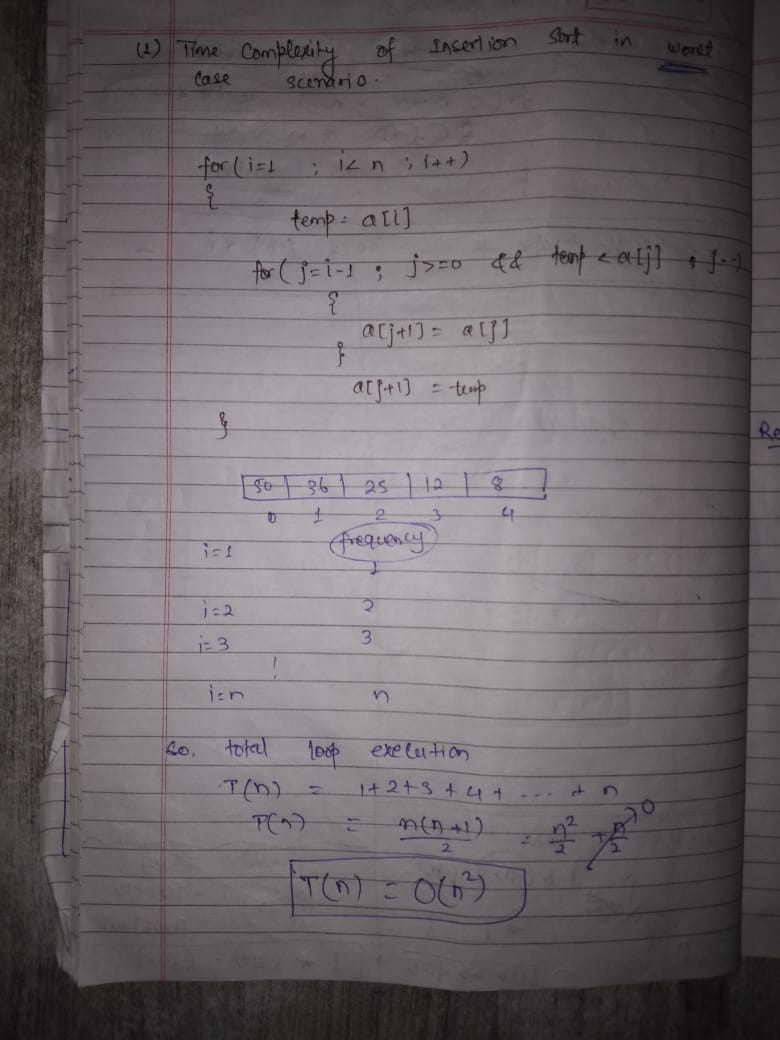 (1) Time Complexity of Insertion Sort in Worst
Case scenario.
for(i=1 ; i<n ; i++)
{
temp = a[i]
for(j=i-1 ; j>=0 && temp<a[j] ; j--)
{
a[j+1] = a[j]
}
a[j+1] = temp
}
50 | 36 | 25 | 12 | 8
0 1 2 3 4
frequency
i=1 1
i=2 2
i=3 3
i=n n
So, total loop execution
T(n) = 1+2+3+4+ ... + n
T(n) = n(n+1)/2 = n²/2 + n/2 0
T(n) = O(n²)
Re